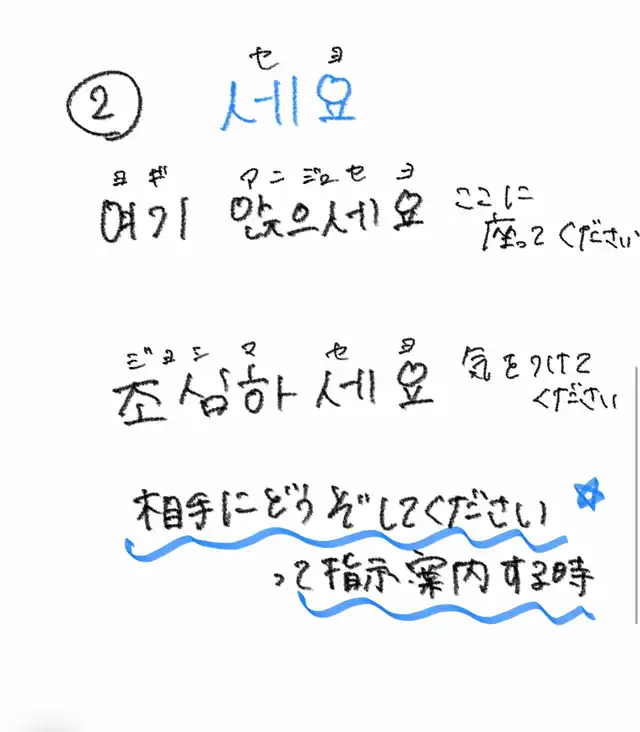 セ ヨ
② 세요
ヨ ギ アンジュセ ヨ
여기 앉으세요 ここに
座ってください
ジョシマ セ ヨ
조심하세요 気をつけて
ください
相手にどうぞしてください
って指示案内する時